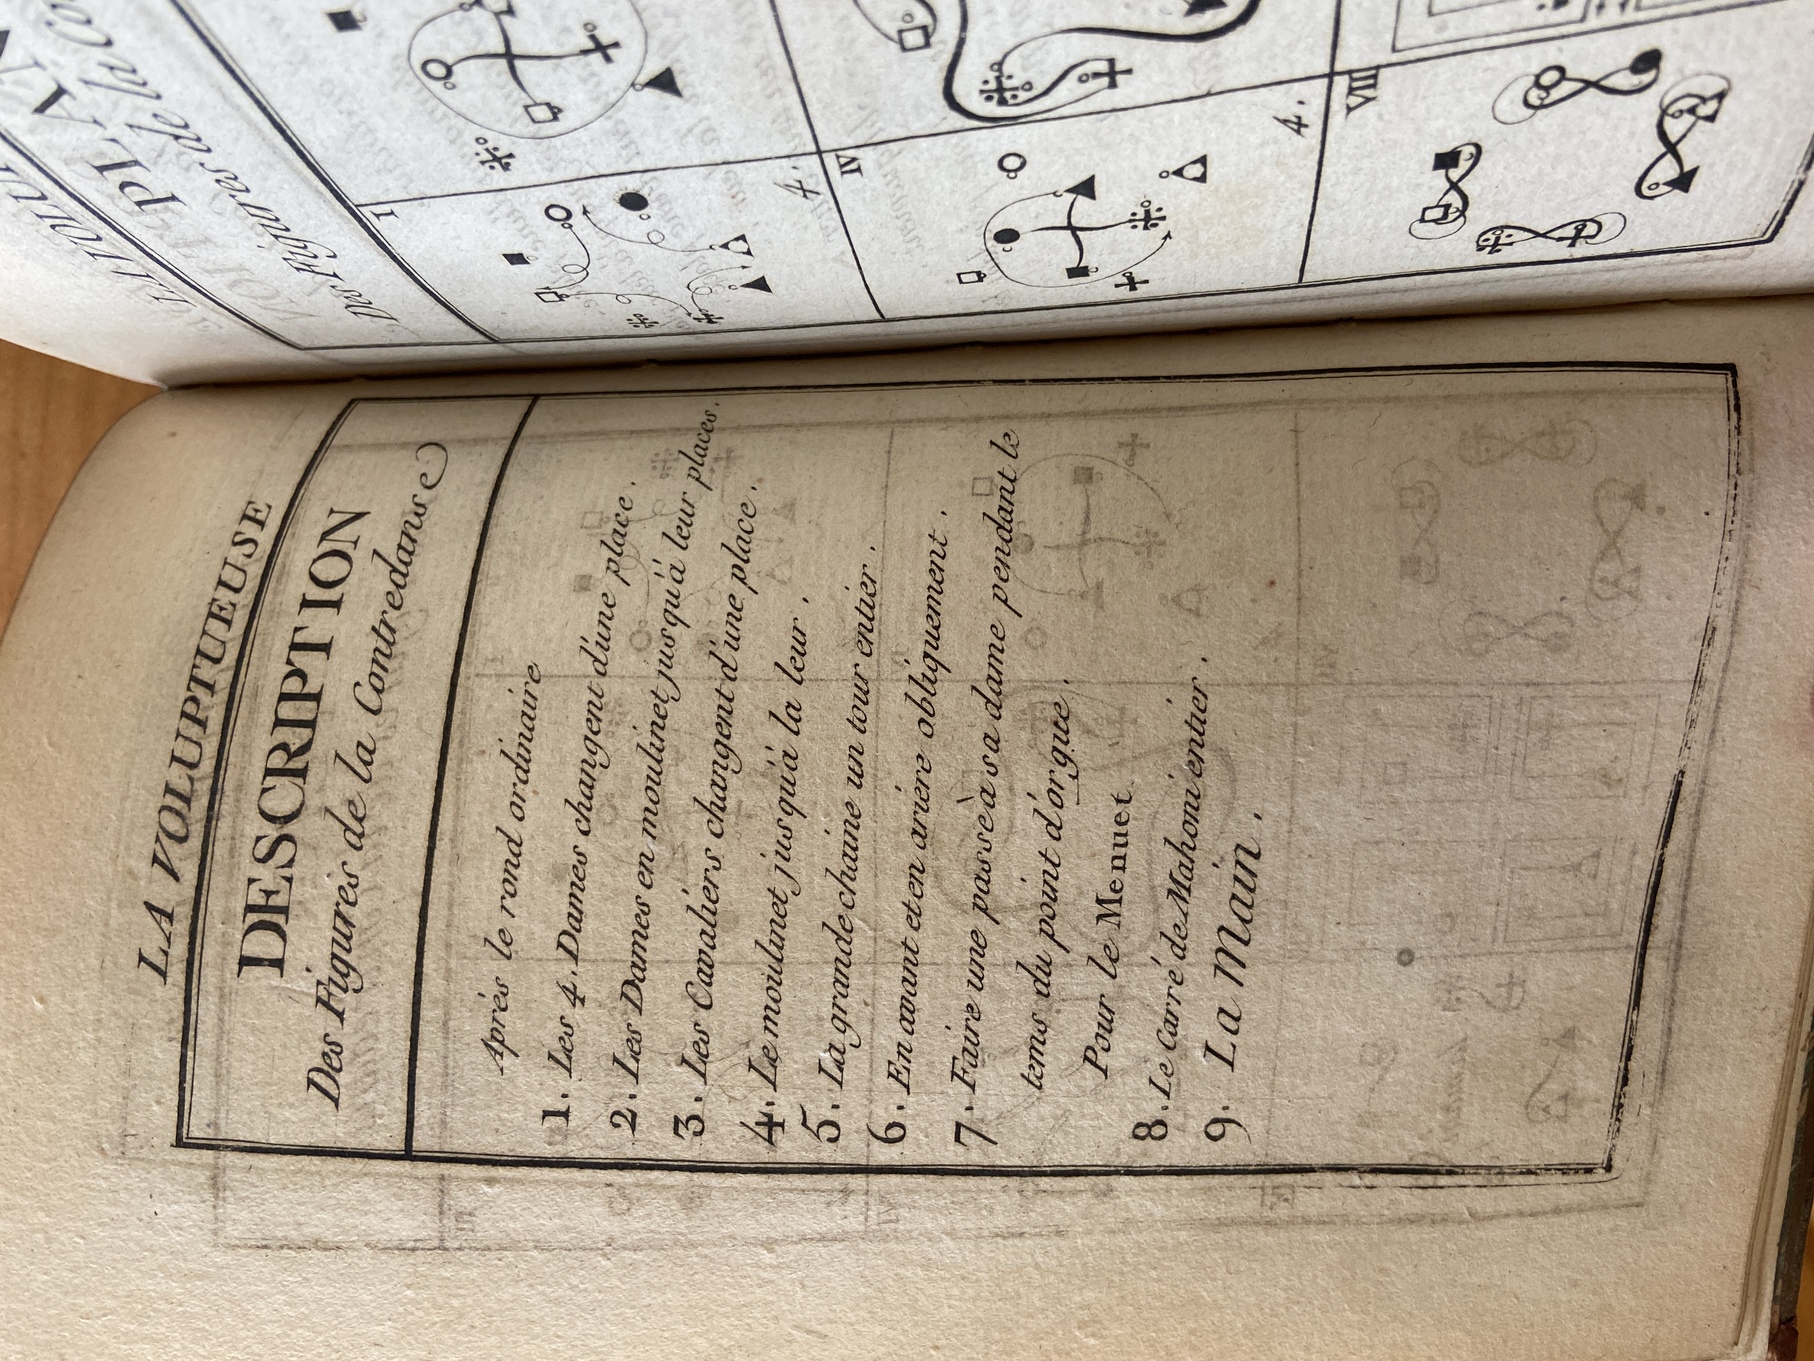 LA VOLUPTUEUSE
DESCRIPTION
Des Figures de la Contredanse
Aprés le rond ordinaire
1. Les 4. Dames changent d'une place.
2. Les Dames en moulinet jusqu'á leur places.
3. Les Cavaliers changent d'une place.
4. Le moulinet jusqu'á la leur.
5. La grande chaine un tour entier.
6. En avant et en ariere obliquement.
7. Faire une passe à sa dame pendant le
tems du point d'orgue.
Pour le Menuet
8. Le Carré de Mahoni entier.
9. La Main.
PLA
Des Figures de la Co
I
4.
IV
4.
VIII